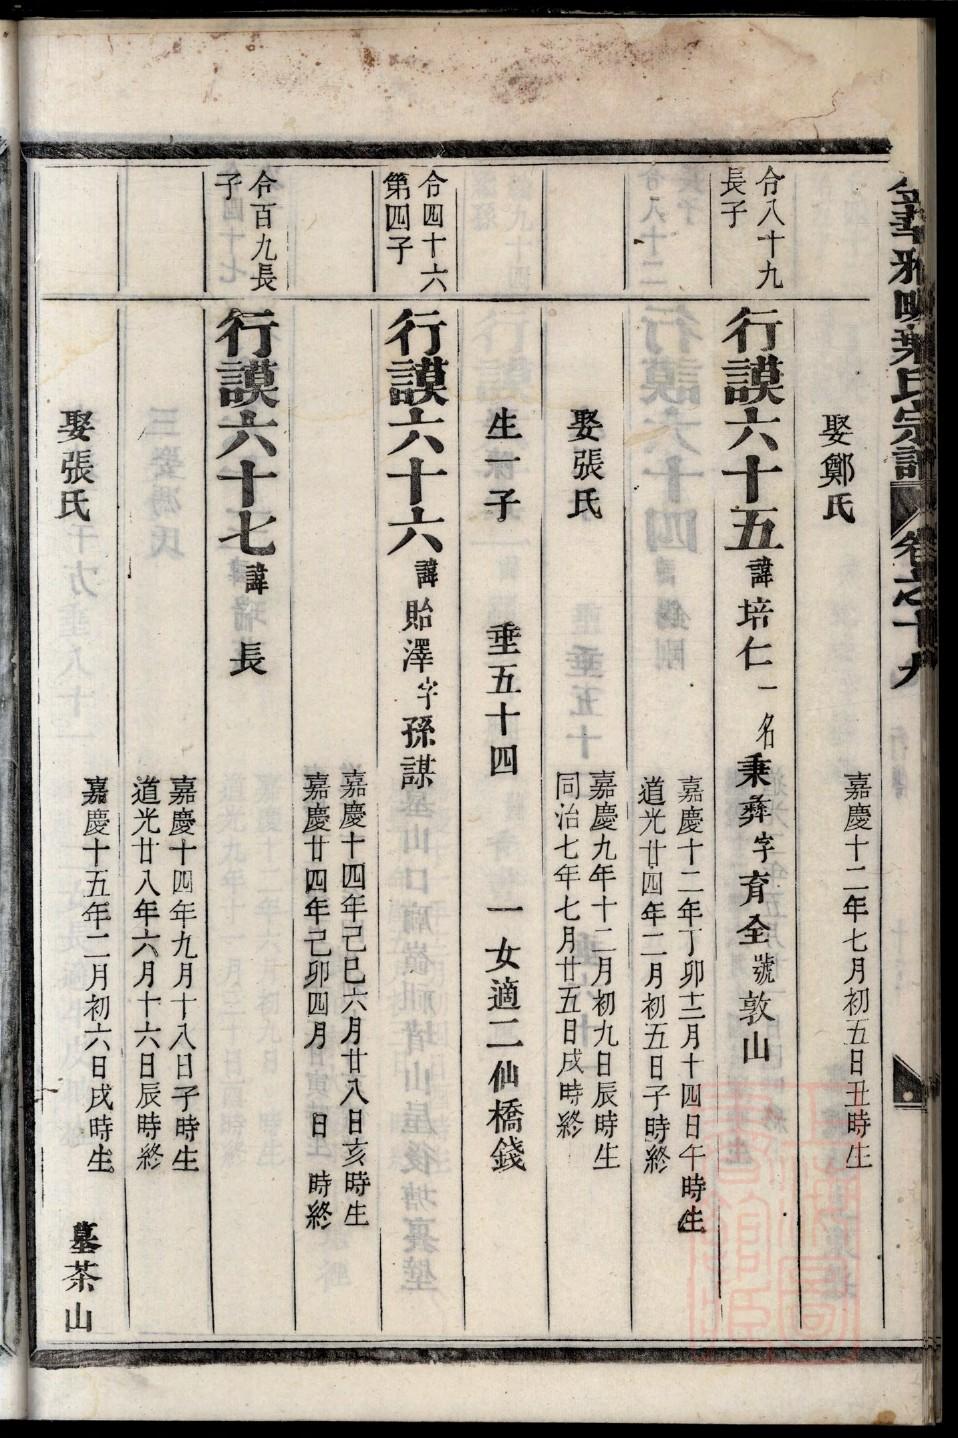 葉氏宗譜 卷之十九
娶鄭氏
嘉慶十二年七月初五日丑時生
令八十九
長子
行謨六十五 諱培仁 一名秉彝 字育全 號敦山
嘉慶十二年丁卯十二月十四日午時生
道光廿四年二月初五日子時終
娶張氏
嘉慶九年十二月初九日辰時生
同治七年七月廿五日戌時終
生一子 垂五十四 一女適二仙橋錢
令四十六
第四子
行謨六十六 諱貽澤 字孫謀
嘉慶十四年己巳六月廿八日亥時生
嘉慶廿四年己卯四月 日 時終
令百九長
子
行謨六十七 諱 長
嘉慶十四年九月十八日子時生
道光廿八年六月十六日辰時終
娶張氏
嘉慶十五年二月初六日戌時生
墓茶山